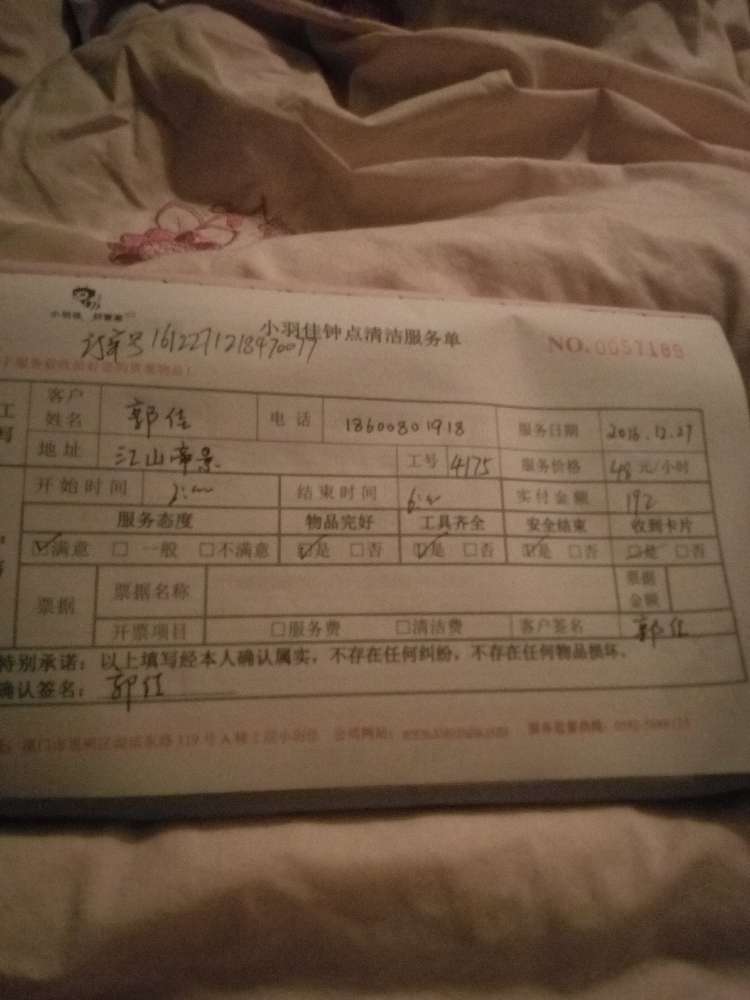 小羽佳 好管家
小羽佳钟点清洁服务单
NO.0057188
订单号
客户姓名 郭佳 电话 18600801918 服务日期 2016.12.27
地址 江山帝景 工号 4175 服务价格 48 元/小时
开始时间 2:00 结束时间 6:00 实付金额 192
服务态度 物品完好 工具齐全 安全结束 收到卡片
☑满意 □一般 □不满意 ☑是 □否 ☑是 □否 ☑是 □否 ☑是 □否
票据 票据名称 票据金额
开票项目 □服务费 □清洁费 客户签名 郭佳
特别承诺：以上填写经本人确认属实，不存在任何纠纷，不存在任何物品损坏。
确认签名：郭佳
119号A梯 小羽佳 公司网站： 服务监督热线：